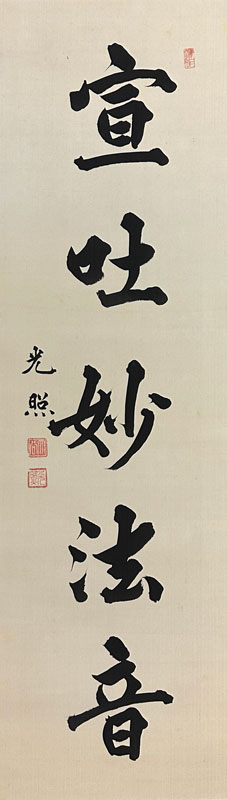 宣吐妙法音
光照